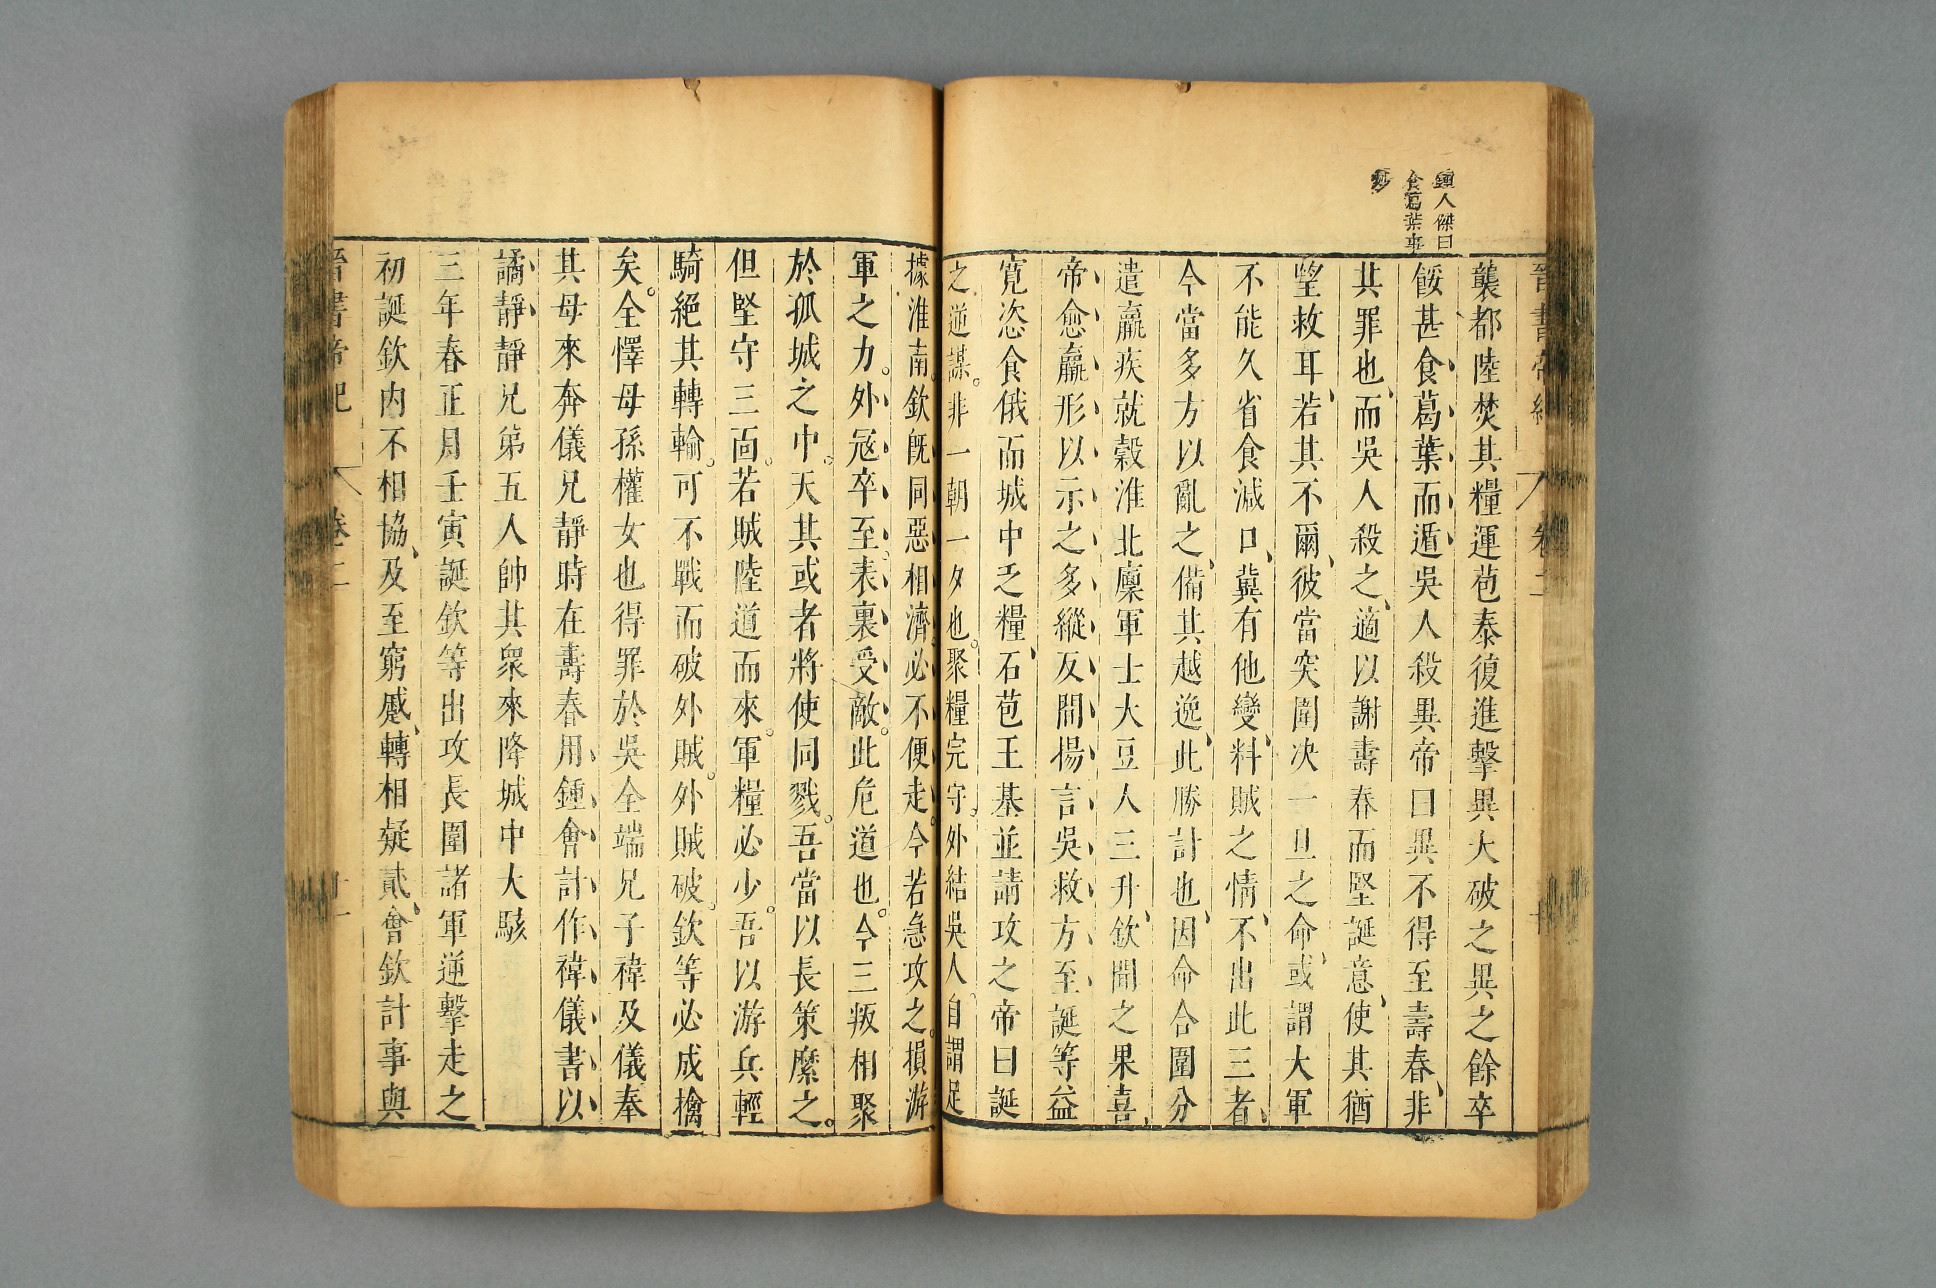 人傑曰
食葛葉事
襲都陸焚其糧運苞泰復進擊異大破之異之餘卒
餒甚食葛葉而遁吳人殺異帝曰異不得至壽春非
其罪也而吳人殺之適以謝壽春而堅誕意使其猶
望救耳若其不爾彼當突圍决一旦之命或謂大軍
不能久省食減口冀有他變料賊之情不出此三者
今當多方以亂之備其越逸此勝計也因命合圍分
遣羸疾就穀淮北廩軍士大豆人三升欽聞之果喜
帝愈羸形以示之多縱反間揚言吳救方至誕等益
寬恣食俄而城中乏糧石苞王基並請攻之帝曰誕
之逆謀非一朝一夕也聚糧完守外結吳人自謂足
據淮南欽既同惡相濟必不便走今若急攻之損游
軍之力外冦卒至表裏受敵此危道也今三叛相聚
於孤城之中天其或者將使同戮吾當以長策縻之
但堅守三面若賊陸道而來軍糧必少吾以游兵輕
騎絕其轉輸可不戰而破外賊外賊破欽等必成擒
矣全懌母孫權女也得罪於吳全端兄子禕及儀奉
其母來奔儀兄靜時在壽春用鍾會計作禕儀書以
譎靜靜兄弟五人帥其衆來降城中大駭
三年春正月壬寅誕欽等出攻長圍諸軍逆擊走之
初誕欽内不相協及至窮蹙轉相疑貳會欽計事與
晉書帝紀 卷二 十一